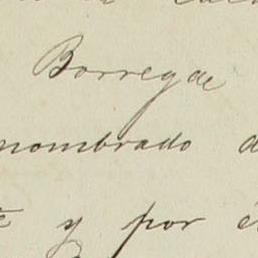 Borregae
nombrado d
y por é